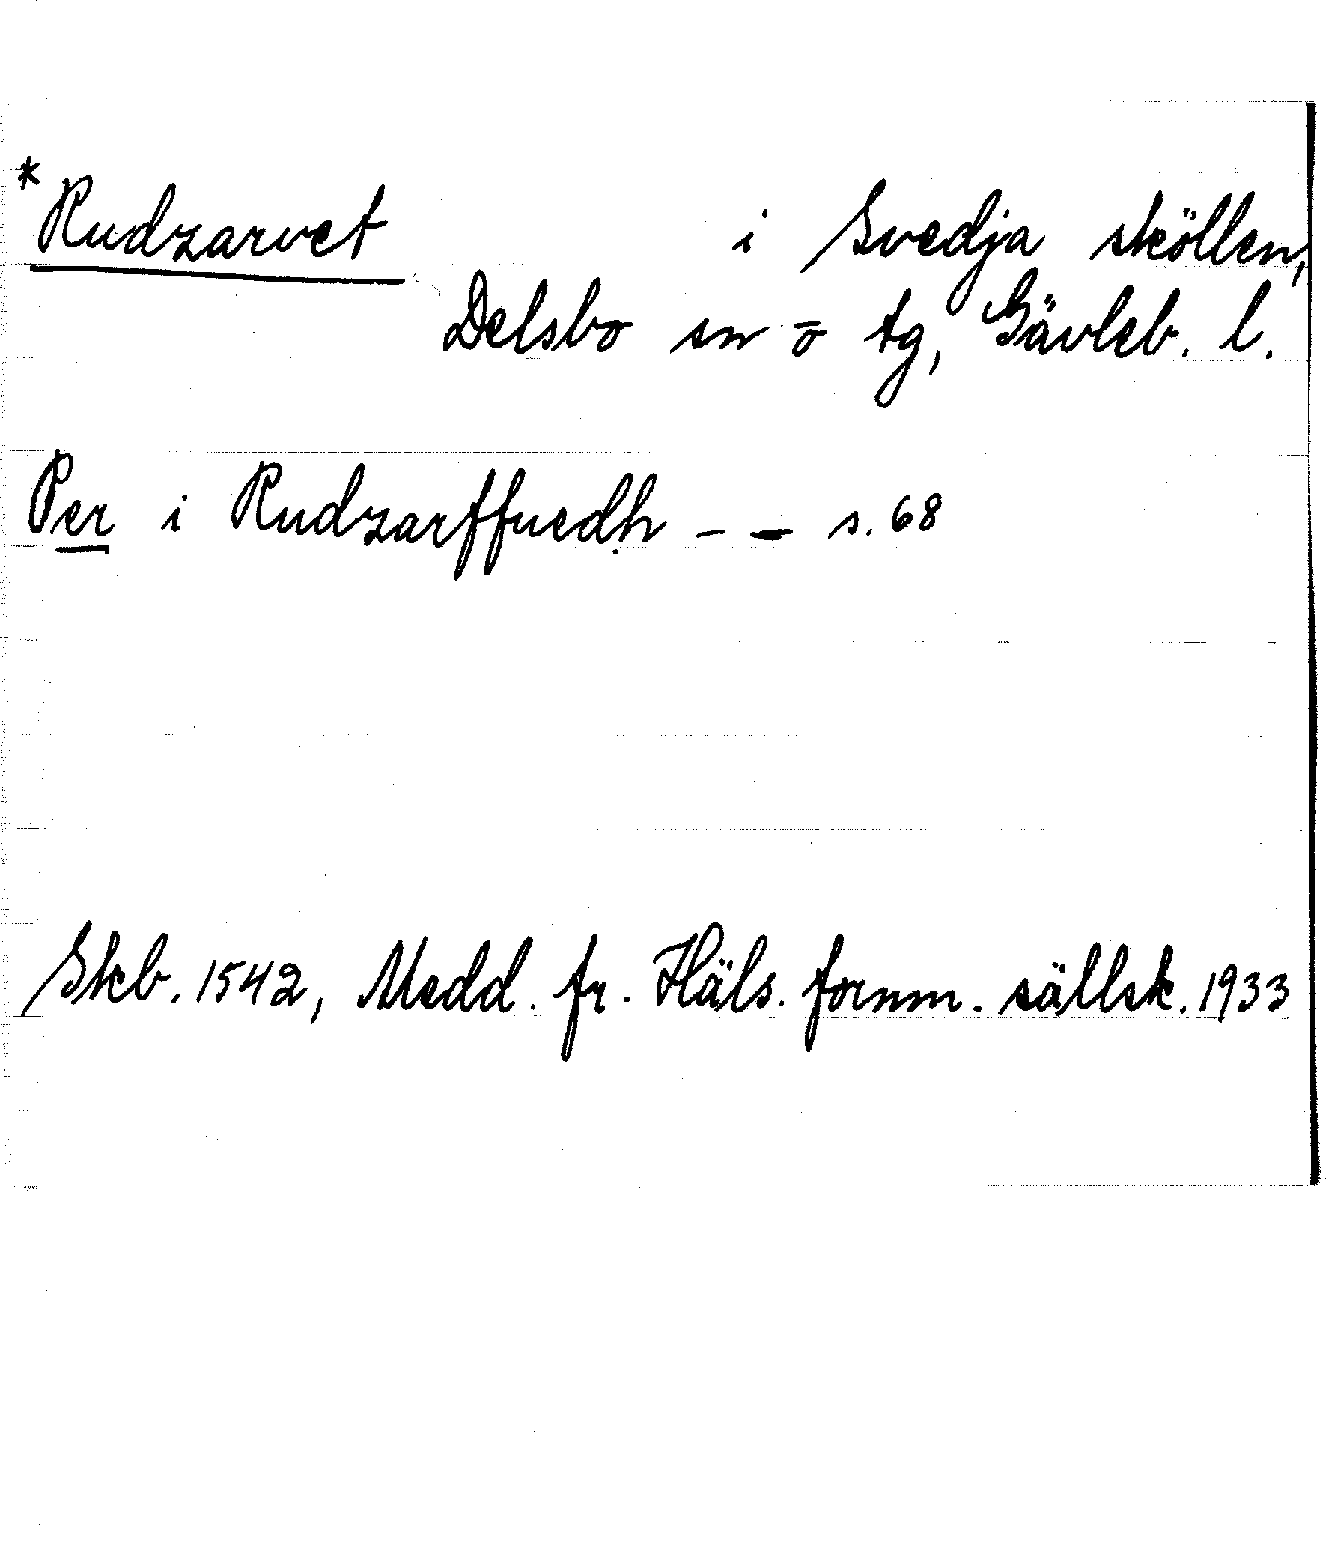 *Rudzarvet i Svedja sköllen,
Delsbo sn o tg, Gävleb. l.
Per i Rudzarffuedh – – s. 68
Skb. 1542, Medd. fr. Häls. fornm. sällsk. 1933